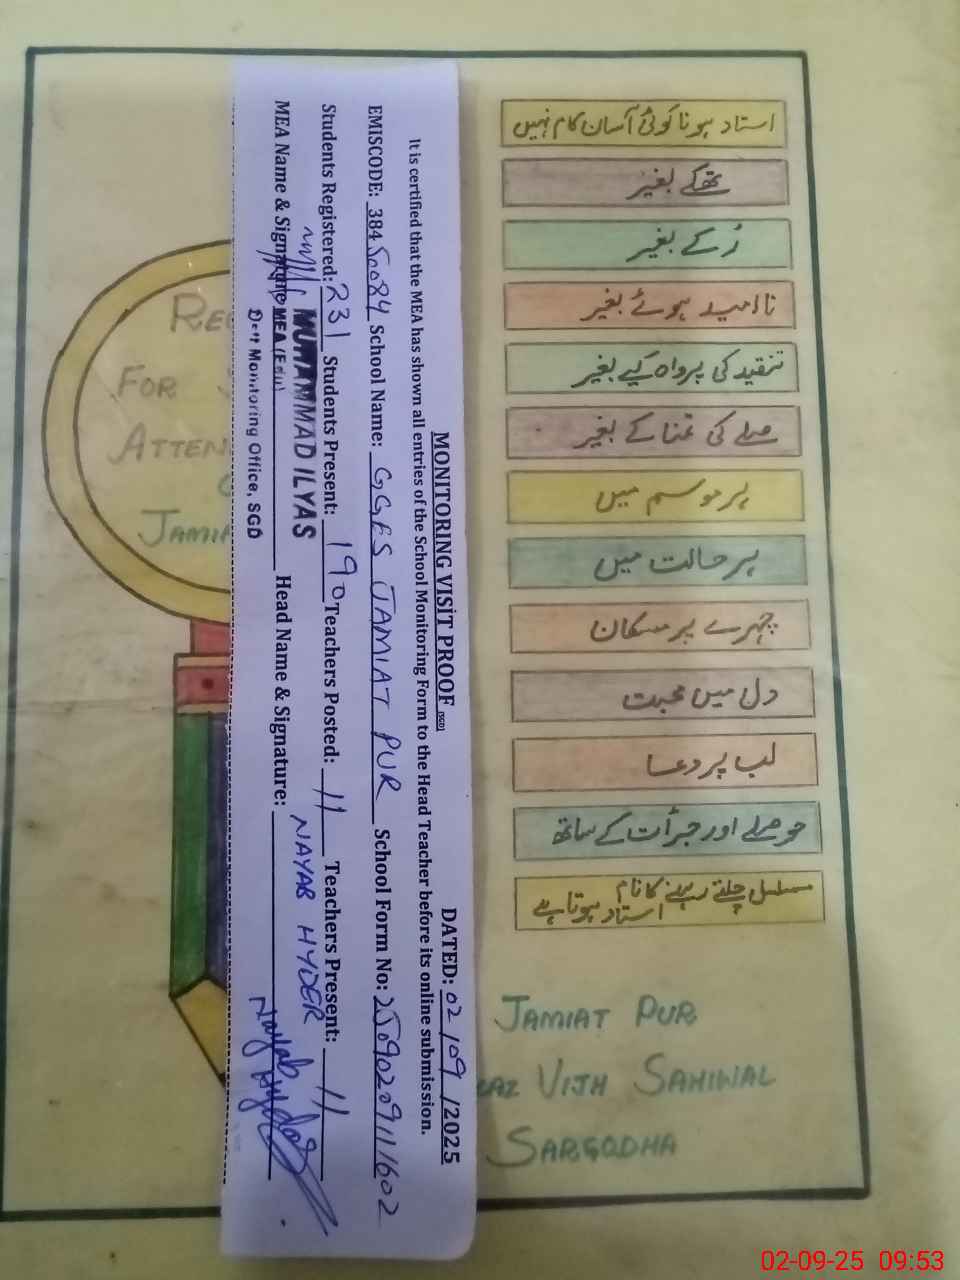 MONITORING VISIT PROOF (SGD) DATED: 02/09/2025
It is certified that the MEA has shown all entries of the School Monitoring Form to the Head Teacher before its online submission.
EMISCODE: 38450084 School Name: GGES JAMIAT PUR School Form No: 25090209111602
Students Registered: 231 Students Present: 190 Teachers Posted: 11 Teachers Present: 11
MEA Name & Signature: Head Name & Signature: NAYAB HYDER
MUHAMMAD ILYAS
MEA (Edu)
Dstt Monitoring Office, SGD
Nayab Hyder
استاد ہونا کوئی آسان کام نہیں
تھکے بغیر
رُکے بغیر
ناامید ہوئے بغیر
تنقید کی پرواہ کیے بغیر
صلے کی تمنا کے بغیر
ہر موسم میں
ہر حالت میں
چہرے پر مسکان
دل میں محبت
لب پر دعا
حوصلے اور جرأت کے ساتھ
مسلسل چلتے رہنے کا نام
استاد ہوتا ہے
FOR
JAMIAT PUR
VIJH SAHIWAL
SARGODHA
02-09-25 09:53